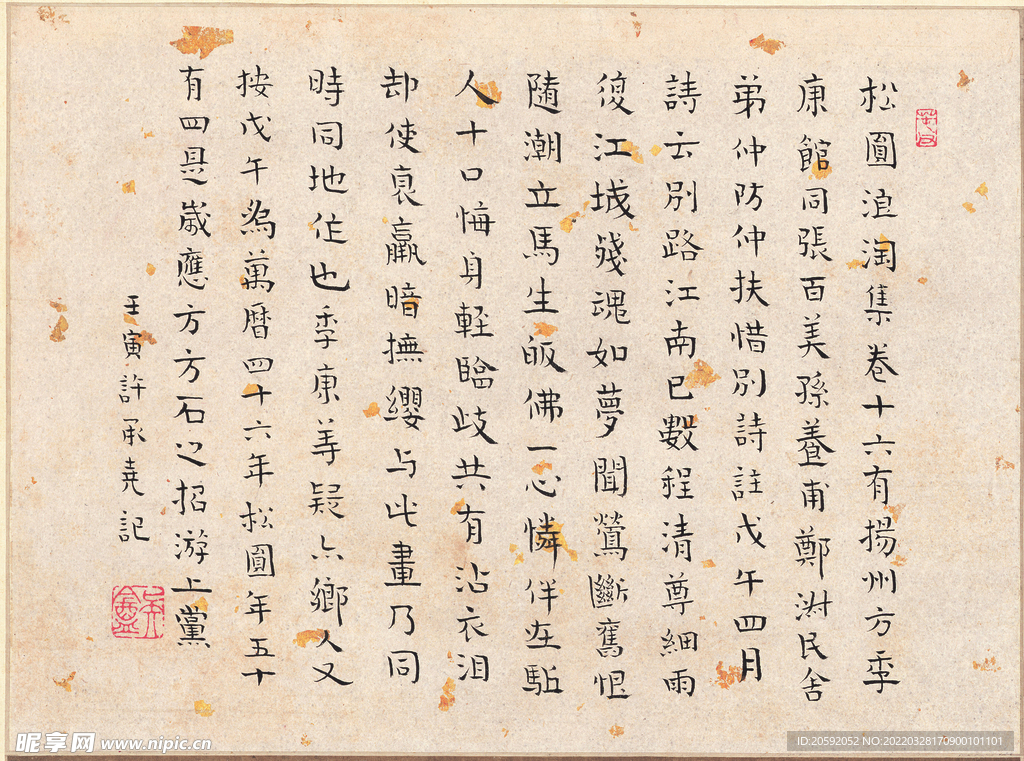 松圓浪淘集卷十六有揚州方季
康館同張百美孫養甫鄭澍民舍
弟仲防仲扶惜別詩註戊午四月
詩云別路江南已數程清尊細雨
復江城殘魂如夢聞鶯斷舊恨
隨潮立馬生皈佛一心憐伴在駈
人十口悔身輕臨歧共有沾衣淚
却使衰羸暗撫纓与此畫乃同
時同地作也季康等疑亦鄉人又
按戊午為萬曆四十六年松圓年五十
有四是歲應方方石之招游上黨
壬寅許承堯記
昵享网 www.nipic.cn
ID:20592052 NO:20220328170900101101